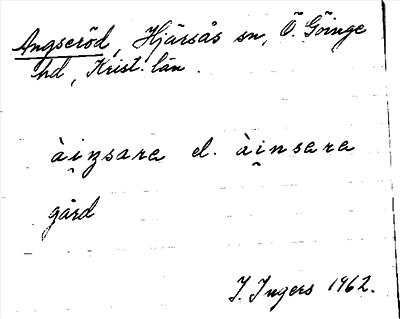 Angseröd, Hjärsås sn, Ö. Göinge
hd, Krist. län.
àiŋsara el. àinsara
gård
I. Ingers 1962.